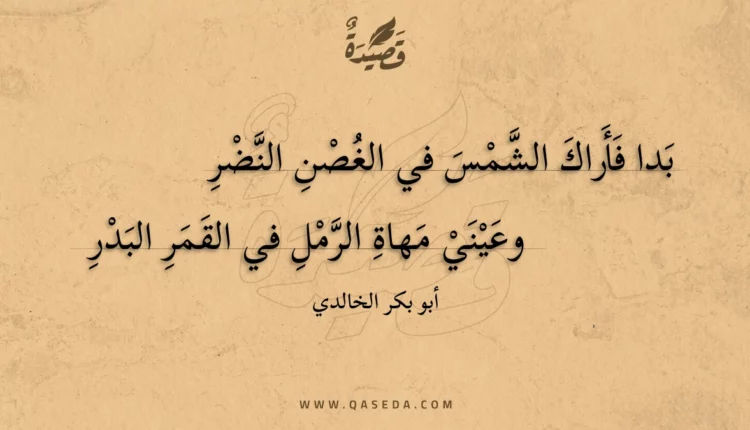 قَصِيْدَةٌ
بَدا فَأَراكَ الشَّمْسَ في الغُصْنِ النَّضْرِ
وعَيْنَيْ مَهاةِ الرَّمْلِ في القَمَرِ البَدْرِ
أبو بكر الخالدي
WWW.QASEDA.COM